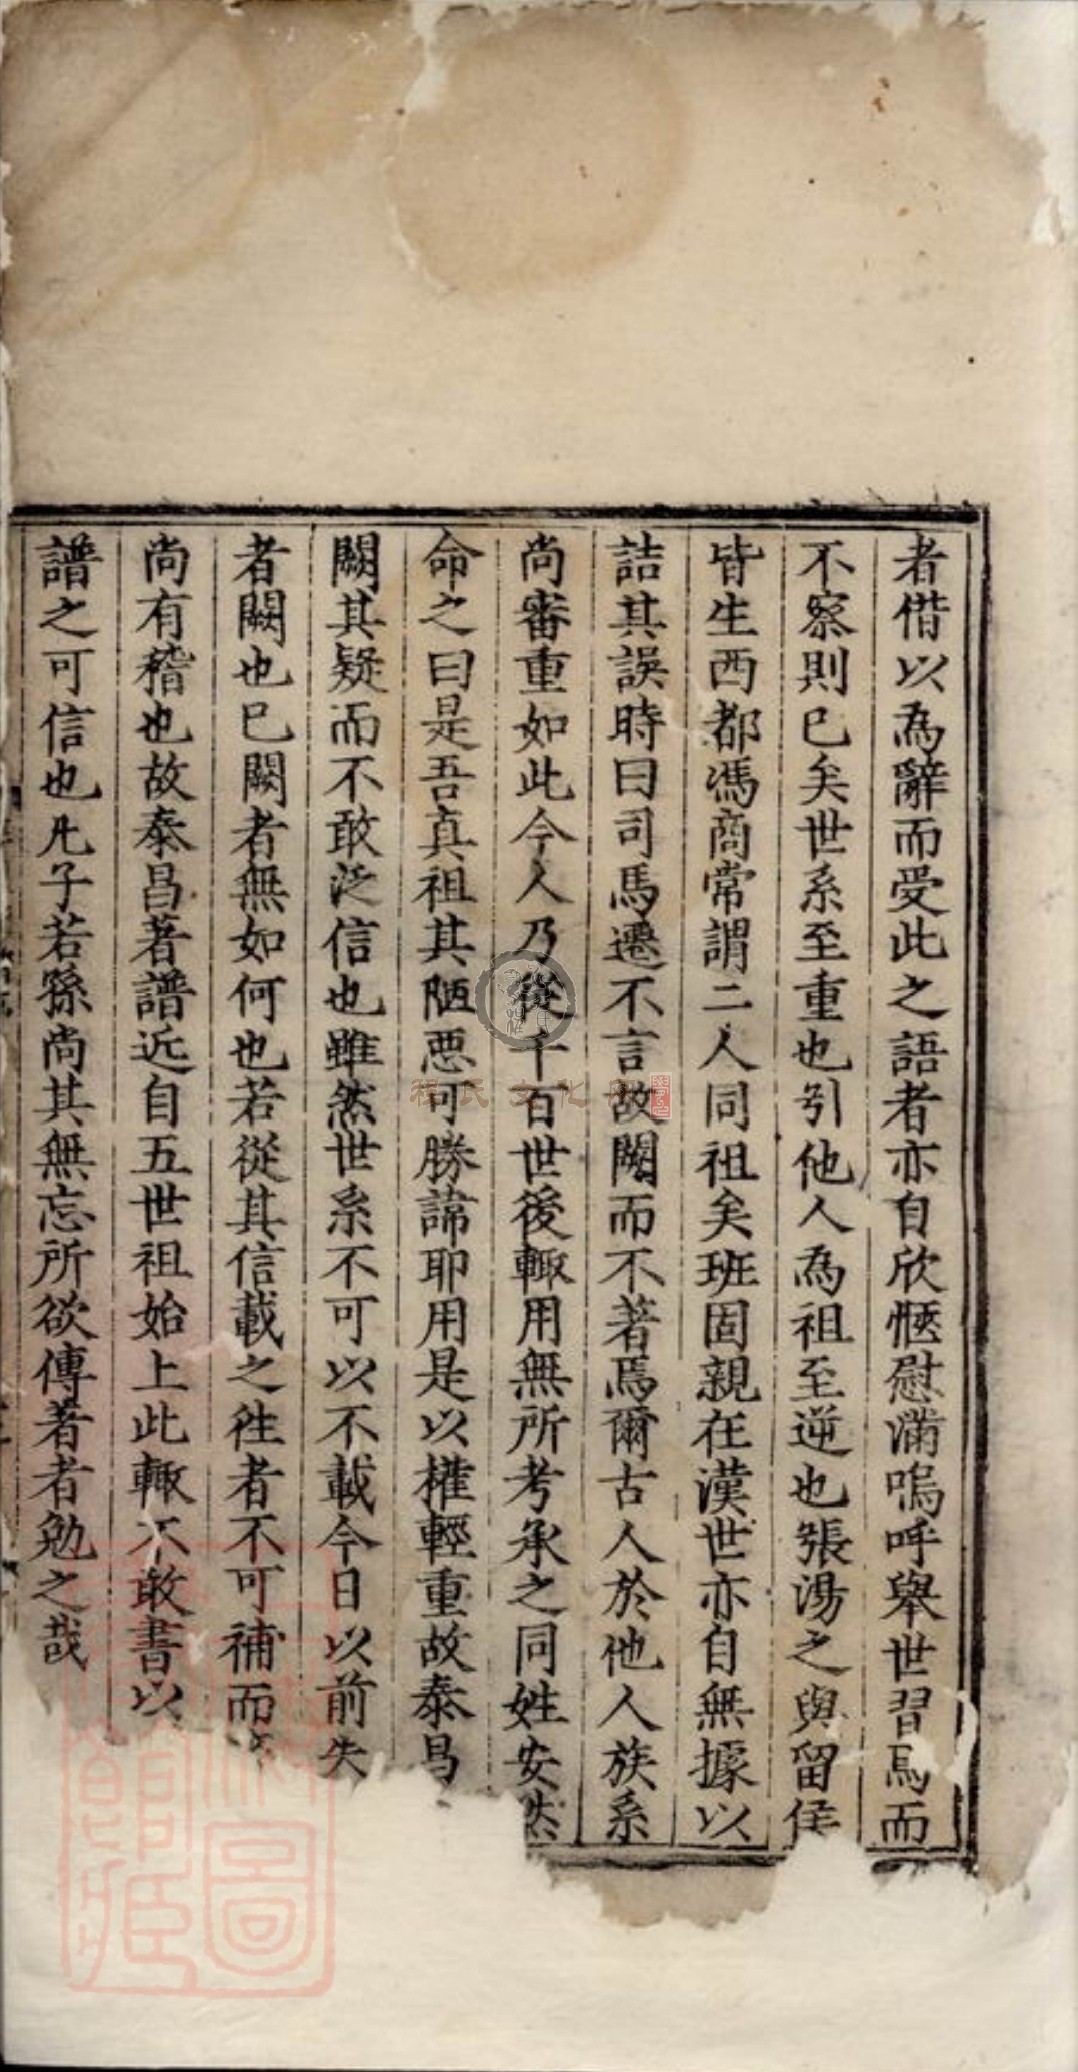 者借以為辭而受此之語者亦自欣愜慰滿嗚呼舉世習焉而
不察則已矣世系至重也引他人為祖至逆也張湯之與留侯
皆生西都馮商常謂二人同祖矣班固親在漢世亦自無據以
詰其誤時曰司馬遷不言故闕而不著焉爾古人於他人族系
尚審重如此今人乃從千百世後輙用無所考承之同姓安然
命之曰是吾真祖其陋惡可勝諦耶用是以權輕重故泰昌
闕其疑而不敢泛信也雖然世系不可以不載今日以前失
者闕也已闕者無如何也若從其信載之徃者不可補而
尚有稽也故泰昌著譜近自五世祖始上此輙不敢書以
譜之可信也凡子若孫尚其無忘所欲傳著者勉之哉
程氏文化网
圖
館藏